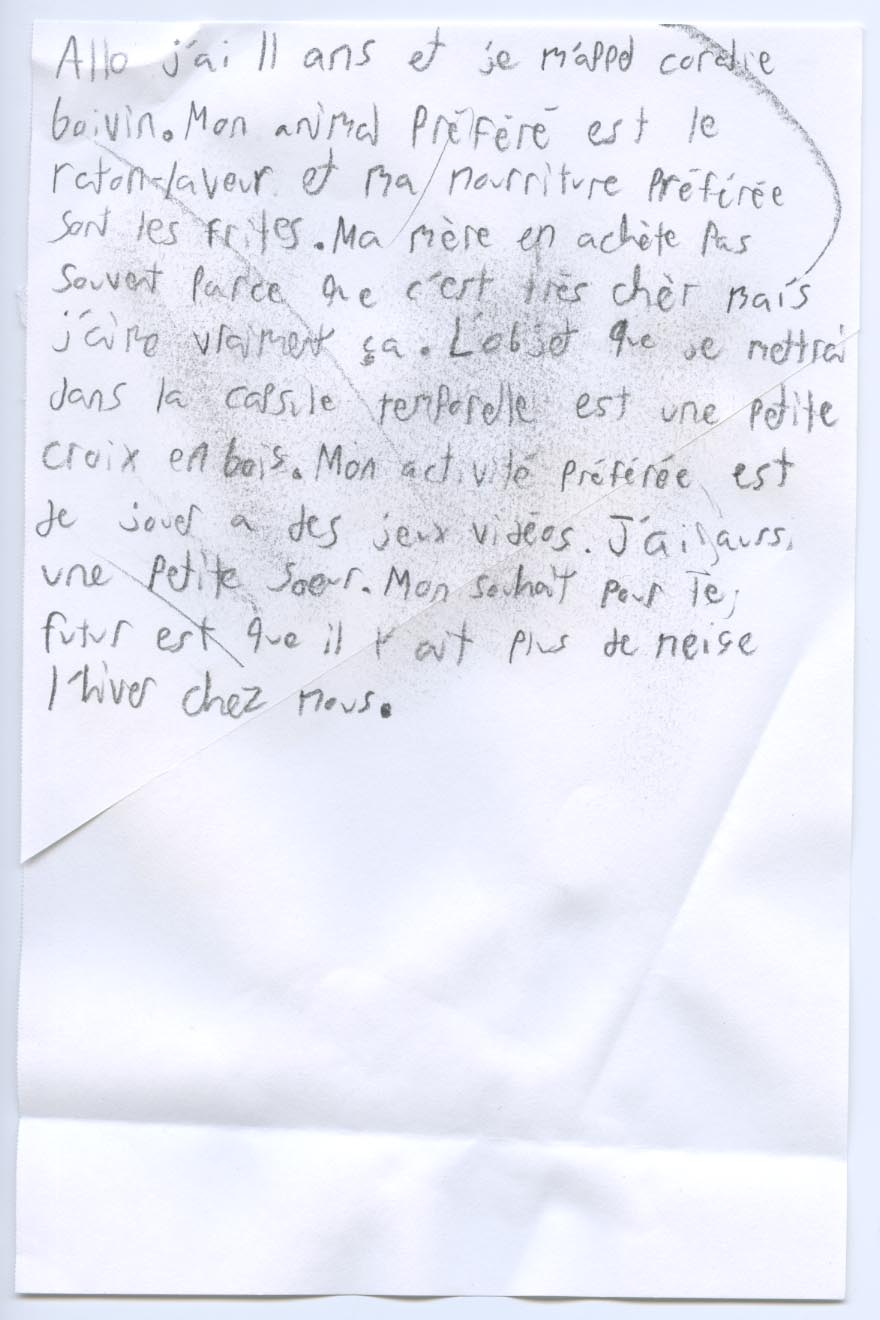 Allo j'ai 11 ans et je m'appel coralie
boivin. Mon animal Préféré est le
raton-laveur et ma nourriture Préférée
sont les frites. Ma mère en achète Pas
Souvent Parce que c'est très chèr mais
j'aime vraiment ça. L'objet que je mettrai
dans la capsule temporelle est une petite
croix en bois. Mon activité préférée est
de jouer a des jeux vidéos. J'ai aussi
une petite Soeur. Mon souhait pour le
futur est que il y ait plus de neige
l'hiver chez nous.